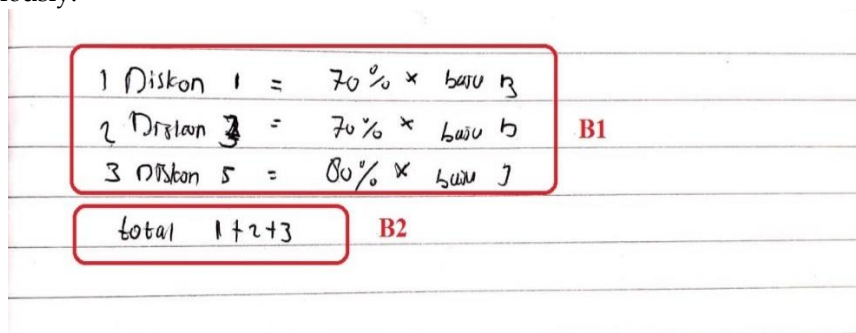 iously.
1 Diskon 1 = 70% × baju B
2 Diskon 3 = 70% × baju b B1
3 Diskon 5 = 80% × baju J
total 1+2+3 B2